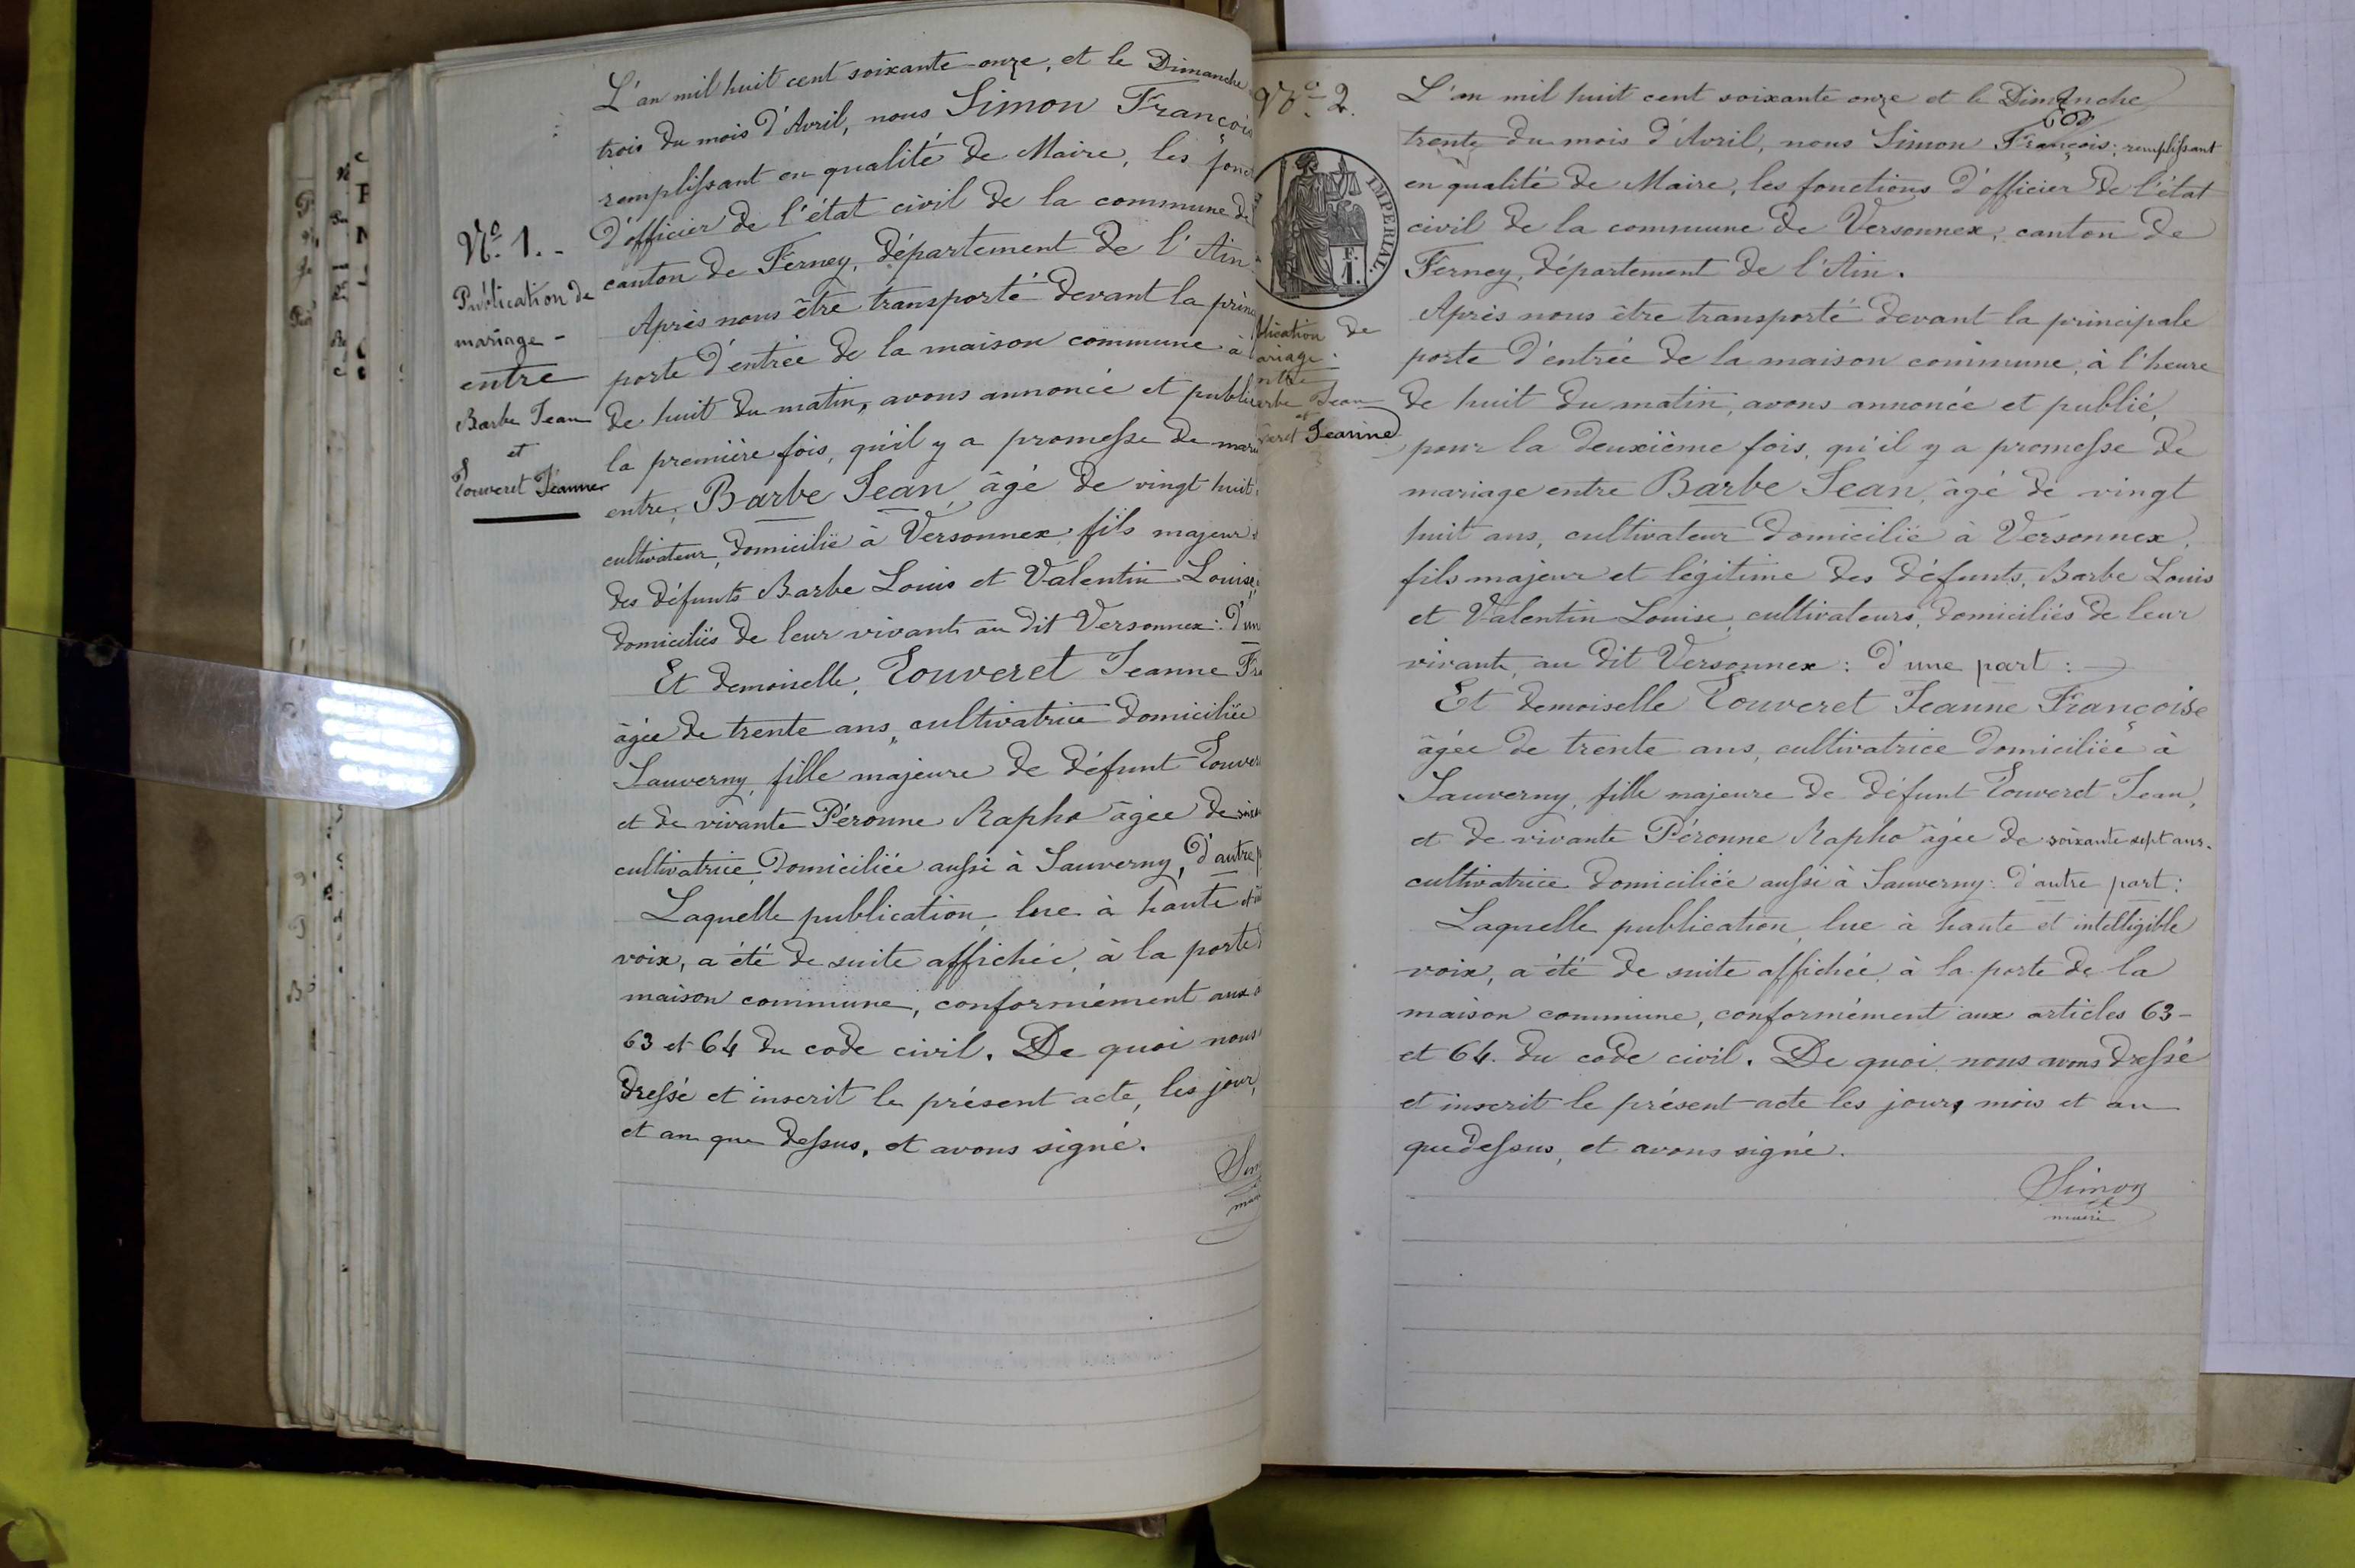 L'an mil huit cent soixante onze, et le Dimanche
trois du mois d'Avril, nous Simon François
remplissant en qualité de Maire, les fonc
d'officier de l'état civil de la commune de
canton de Ferney, département de l'Ain.
Après nous être transporté devant la prin
porte d'entrée de la maison commune à
de huit du matin, avons annoncé et publié
la première fois, qu'il y a promesse de mari
entre, Barbe Jean, âgé de vingt huit
cultivateur, domicilié à Versonnex fils majeur
des défunts Barbe Louis et Valentin Louise
domiciliés de leur vivant au dit Versonnex : d'un
Et demoiselle, Touveret Jeanne Fra
âgée de trente ans, cultivatrice domiciliée
Sauverny, fille majeure de défunt Touver
et de vivante Péronne Rapho âgée de soix
cultivatrice domiciliée aussi à Sauverny, d'autre p
Laquelle publication, lue à haute et
voix, a été de suite affichée, à la porte
maison commune, conformément aux
63 et 64 du code civil. De quoi nous
dressé et inscrit le présent acte, les jour,
et an que dessus, et avons signé.
Sim
mai
No. 1.-
Publication de
mariage -
entre
Barbe Jean
et
Touveret Jeanne
No. 2.
IMPERIAL.
F.
1.
blication de
ariage.
ntre
arbe Jean
et
veret Jeanne
L'an mil huit cent soixante onze et le Dimanche
trente du mois d'Avril, nous Simon François; remplissant
en qualité de Maire, les fonctions d'officier de l'état
civil de la commune de Versonnex, canton de
Ferney, département de l'Ain.
Après nous être transporté devant la principale
porte d'entrée de la maison commune, à l'heure
de huit du matin, avons annoncé et publié,
pour la deuxième fois, qu'il y a promesse de
mariage entre Barbe Jean, âgé de vingt
huit ans, cultivateur domicilié à Versonnex,
fils majeur et légitime des défunts, Barbe Louis
et Valentin Louise, cultivateurs, domiciliés de leur
vivant, au dit Versonnex : d'une part :
Et demoiselle Touveret Jeanne Françoise
âgée de trente ans, cultivatrice domiciliée à
Sauverny, fille majeure de défunt Touveret Jean,
et de vivante Péronne Rapho âgée de soixante sept ans.
cultivatrice domiciliée aussi à Sauverny : d'autre part :
Laquelle publication, lue à haute et intelligible
voix, a été de suite affichée, à la porte de la
maison commune, conformément aux articles 63-
et 64. du code civil. De quoi nous avons dressé
et inscrit le présent acte les jour, mois et an
que dessus, et avons signé.
Simon
maire